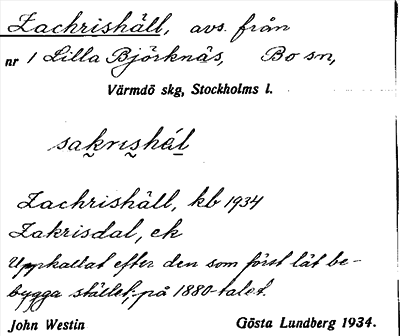 Zachrishäll, avs. från
nr 1 Lilla Björknäs, Bo sn,
Värmdö skg, Stockholms l.
sakrishäl
Zachrishäll, kb 1934
Zakrisdal, ek
Uppkallat efter den som först lät be-
bygga stället på 1880-talet.
John Westin Gösta Lundberg 1934.